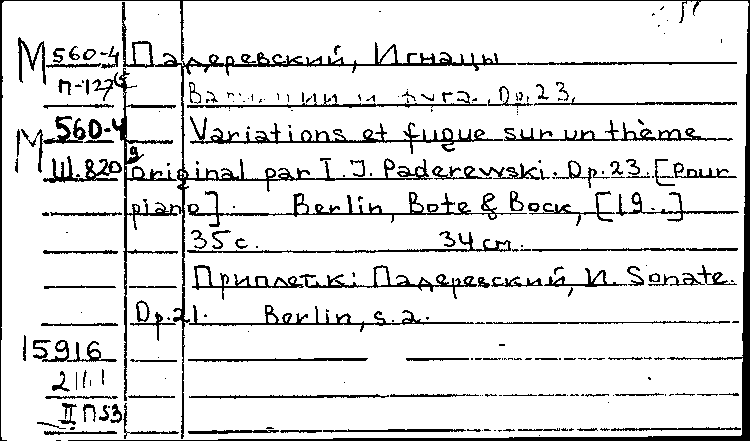 М 560-4 Падеревский, Игнацы
П-127 Вариации и фуга. Op.23.
М 560-4 Variations et fugue sur un thème
Ш.820 original par I.J. Paderewski. Op.23. [Pour
piano]. Berlin, Bote & Bock, [19..]
35 с. 34 см.
Приплет. к: Падеревский, И. Sonate.
Op.21. Berlin, s.a.
15916
II П53